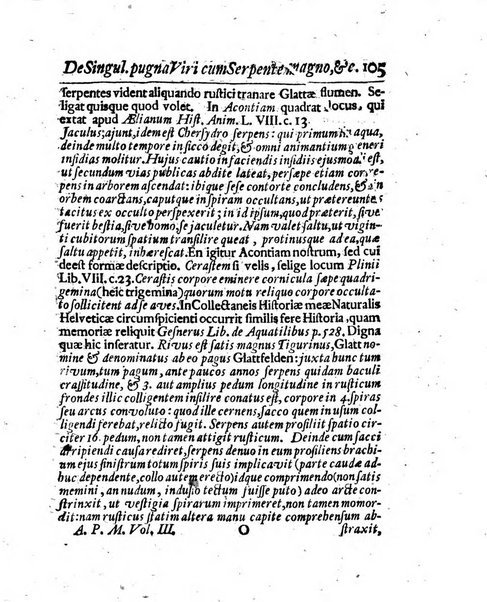 De Singul. pugna Viri cum Serpente magno, &c. 105
serpentes vident aliquando rustici tranare Glattæ flumen. Se-
ligat quisque quod volet. In Acontiam quadrat locus, qui
extat apud Ælianum Hist. Anim. L. VIII. c. 13.
Jaculus; ajunt, idem est Chersydro serpens: qui primum in aqua,
deinde multo tempore in sicco degit, & omni animantium generi
insidias molitur. Hujus cautio in faciendis insidiis ejusmodi est,
ut secundum vias publicas abdite lateat, persæpe etiam corre-
pens in arborem ascendat: ibique sese contorte concludens, & in
orbem coarctans, caput que in spiram occultans, ut prætereuntes
tacitus ex occulto perspexerit; in id ipsum, quod præterit, sive
fuerit bestia, sive homo, se jaculetur. Nam valet saltu, ut vigin-
ti cubitorum spatium transilire queat, protinusque ad ea, quæ
saltu appetit, inhærescat. En igitur Acontiam nostrum, sed cui
deest formæ descriptio. Cerastem si velis, selige locum Plinii
Lib. VIII. c. 23. Cerastis corpore eminere cornicula sæpe quadri-
gemina (heic trigemina) quorum motu reliquo corpore occulta-
to sollicitent ad se aves. In Collectaneis Historiæ meæ Naturalis
Helveticæ circumspicienti occurrit similis fere Historia, quam
memoriæ reliquit Gesnerus Lib. de Aquatilibus p. 528. Digna
quæ hic inseratur. Rivus est satis magnus Tigurinus, Glatt no-
mine & denominatus ab eo pagus Glattfelden: juxta hunc tum
rivum, tum pagum, ante paucos annos serpens quidam baculi
crassitudine, & 3. aut amplius pedum longitudine in rusticum
frondes illic colligentem insilire conatus est, corpore in 4. spiras
seu arcus convoluto: quod ille cernens, sacco quem in usum col-
ligendi ferebat, relicto fugit. Serpens autem prosiliit spatio cir-
citer 16. pedum, non tamen attigit rusticum. Deinde cum sacci
arripiendi causa rediret, serpens denuo in eum prosiliens brachi-
um ejus sinistrum totum spiris suis implicavit (parte caudæ ad-
huc dependente, collo autem erecto) idque comprimendo (non satis
memini, an nudum, indusio tectum fuisse puto) adeo arcte con-
strinxit, ut vestigia spirarum imprimeret, non tamen momor-
dit: nam rusticus statim altera manu capite comprehensum ab-
A. P. M. Vol. III. O straxit,